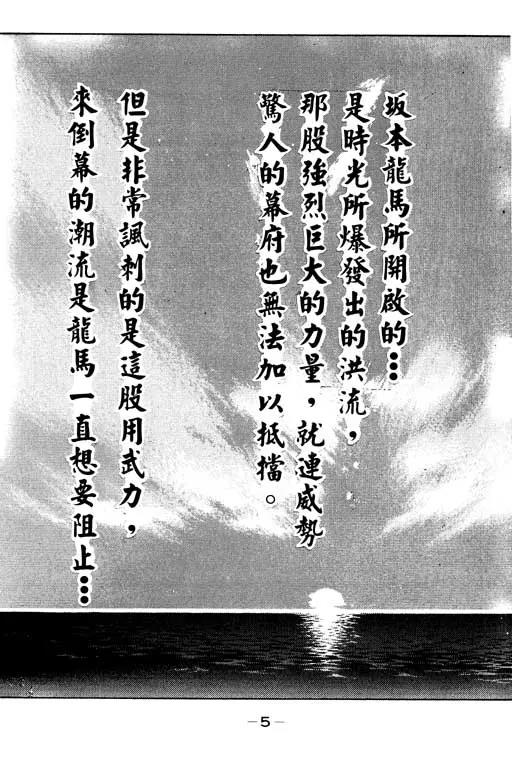 坂本龍馬所開啟的…
是時光所爆發出的洪流，
那股強烈巨大的力量，就連威勢
驚人的幕府也無法加以抵擋。
但是非常諷刺的是這股用武力，
來倒幕的潮流是龍馬一直想要阻止…
－5－